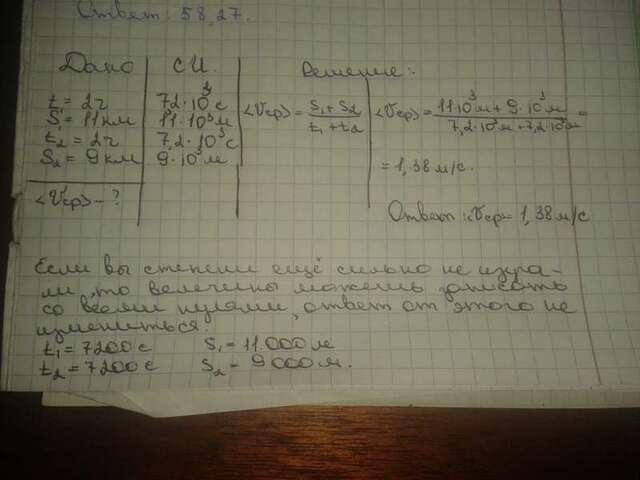 Ответ: 58,27.
Дано
t₁ = 2ч
S₁ = 11 км
t₂ = 2ч
S₂ = 9 км
<Vср> - ?
СИ
7,2·10³ с
11·10³ м
7,2·10³ с
9·10³ м
Решение:
<Vср> = (S₁ + S₂)/(t₁ + t₂)
<Vср> = (11·10³ м + 9·10³ м)/(7,2·10³ м + 7,2·10³ м) =
= 1,38 м/с.
Ответ: Vср = 1,38 м/с
Если вы степени ещё сильно не изуча-
ли, то величины можешь записать
со всеми нулями, ответ от этого не
измениться.
t₁ = 7200 с S₁ = 11.000 м
t₂ = 7200 с S₂ = 9000 м.